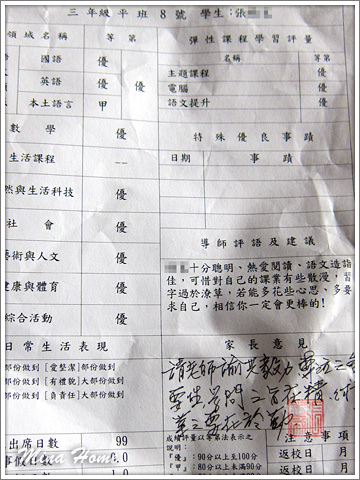 三年級平班 8 號 學生:張
領域名稱 等第
國語 優
英語 優 優
本土語言 甲
數學 優
生活課程 --
然與生活科技 優
社會 優
藝術與人文 優
健康與體育 優
綜合活動 優
彈性課程學習評量
名稱 等第
主題課程 優
電腦 優
語文提升 優
特殊優良事蹟
日期 事蹟
導師評語及建議
十分聰明、熱愛閱讀、語文造詣
佳,可惜對自己的課業有些散漫,習
字過於潦草,若能多花些心思、多要
求自己,相信你一定會更棒的!
日常生活表現
部份做到 [愛整潔]部份做到
部份做到 [有禮貌]大部份做到
部份做到 [負責任]大部份做到
家長意見
請老師
出席日數 99
事假日數 .0
成績評量以等第法表示之
說明:
『優』:90分以上至100分
『甲』:80分以上未滿90分
注意事項
返校日 月
返校日 月
Mina Home